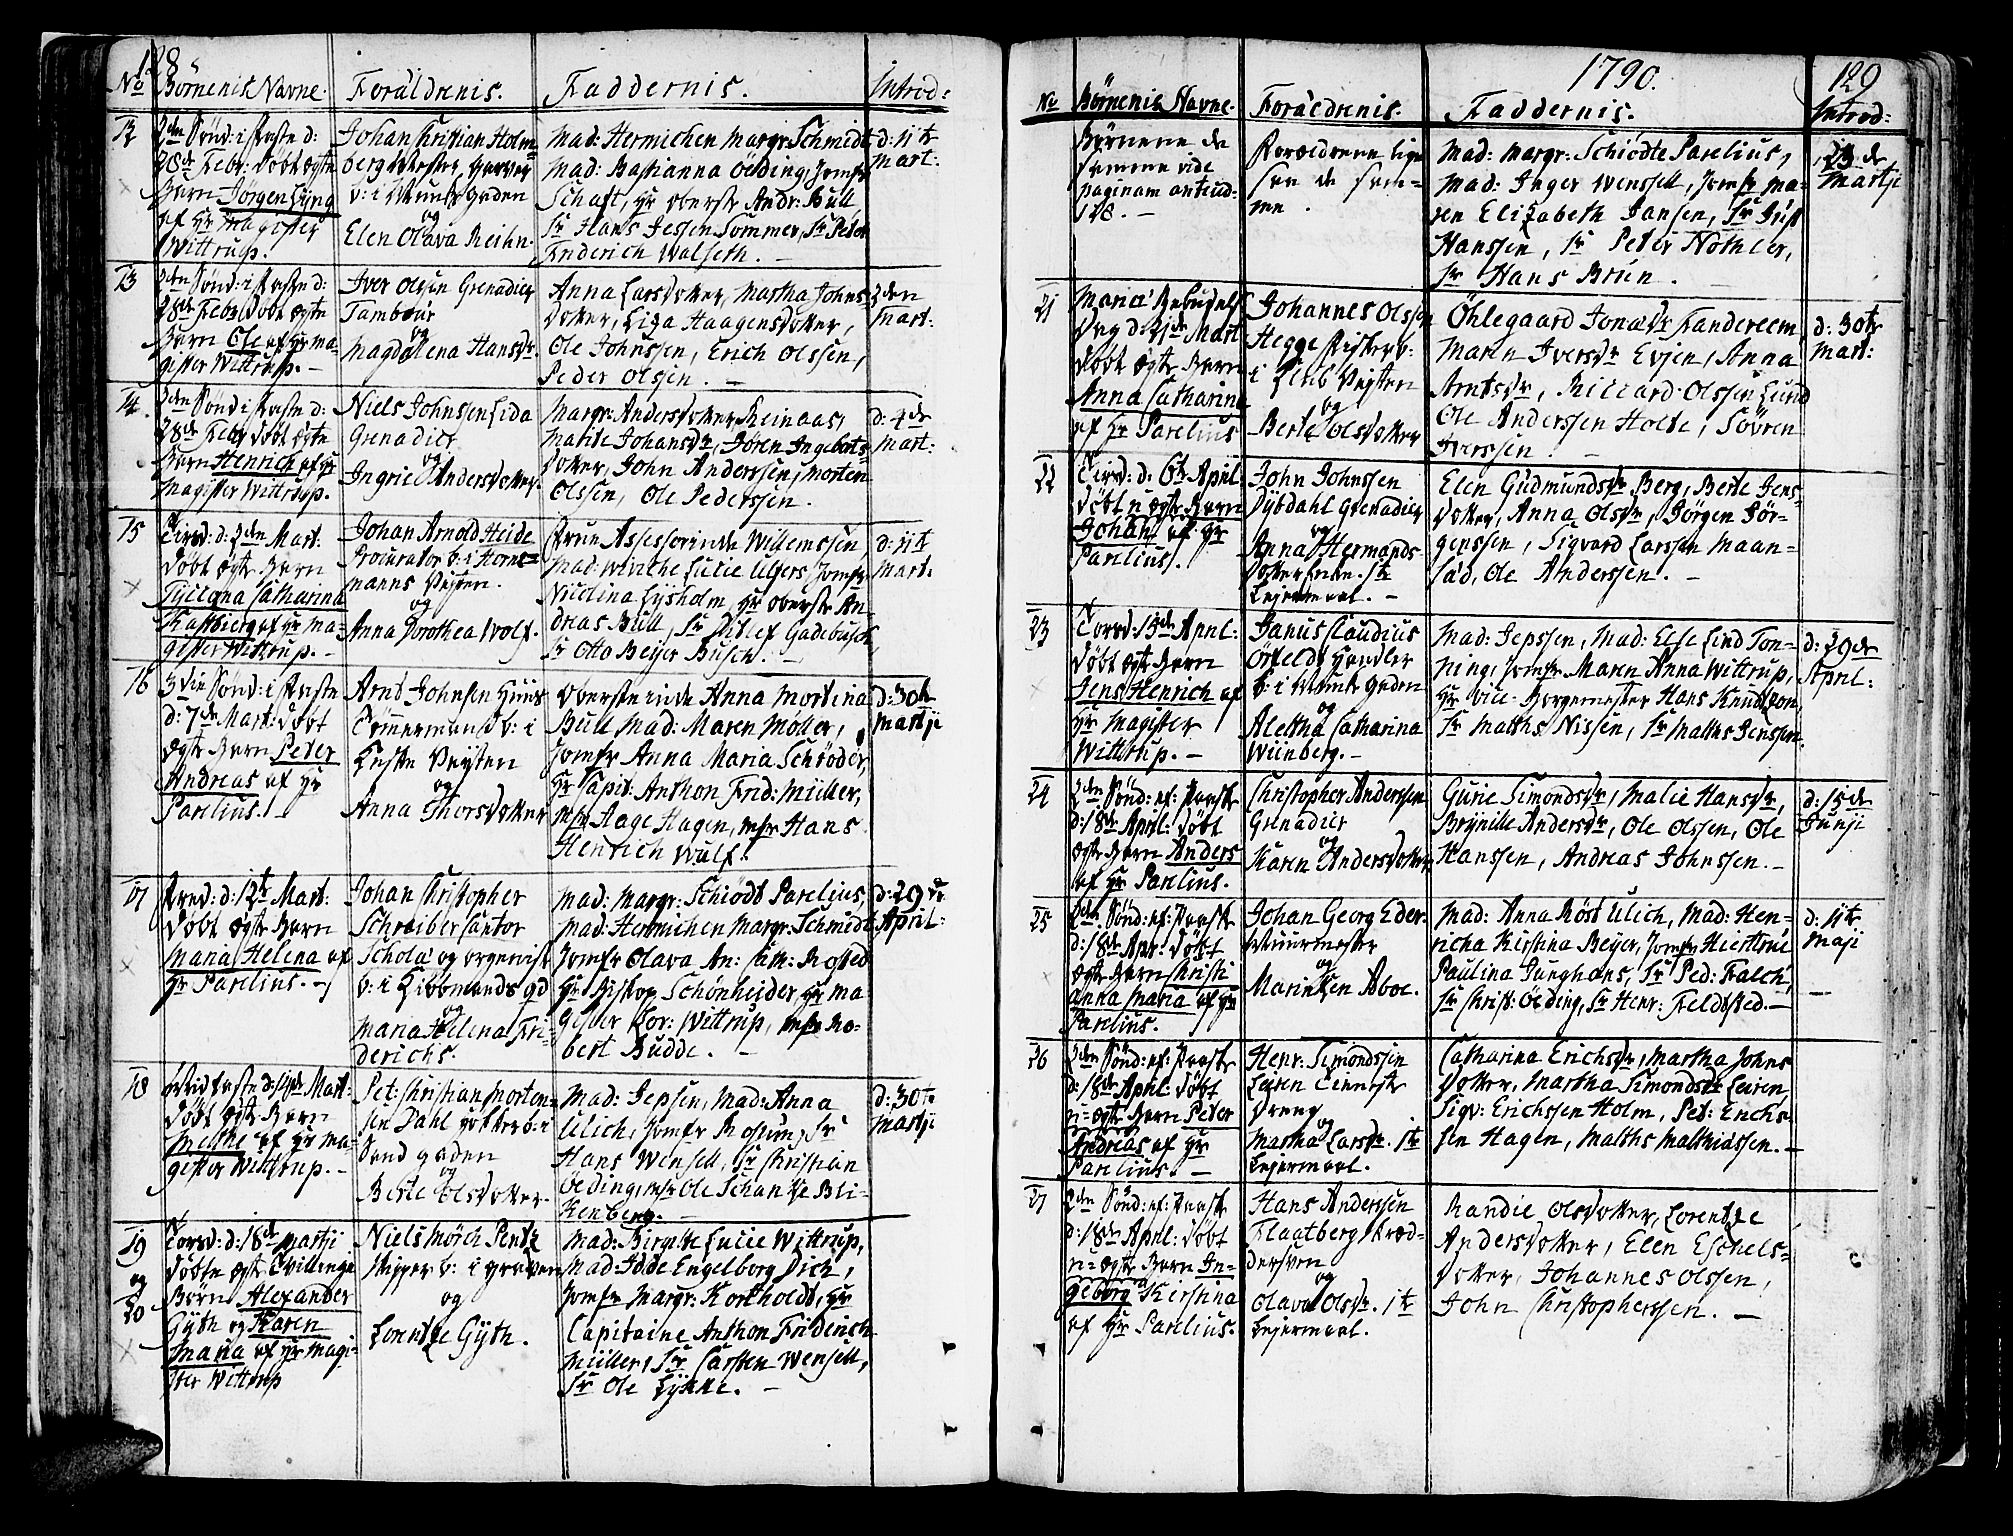 128
No
Børnenis Navne.
Foräldrenis.
Faddernis.
Introd:
12
2den Sönd: i Faste d:
28de Febr: döbt ægte
Barn Jörgen Lyng
af Hr Magister
Wittrup.
Johan Christian Holm-
berg Mester Garver
b: i Munke Gaden
og
Elen Olava Reihn.
Mad: Hermichen Margr: Schmidt
Mad: Bastianna Öelding, Jomfr
Schaft, Hr Oberste Andr: Bull
Sr Hans Jessen Sommer, Sr Peter
Friderich Walseth. -
d: 11te
Mart:
13
2den Sönd: i Faste d:
28de Febr döbt ægte
Barn Ole af Hr Ma-
gister Wittrup. -
Iver Olsen Grenadier
Tambour
og
Magdalena Hansdr.
Anna Larsdotter, Martha Johns-
dotter, Liza Haagensdotter,
Ole Johnssen, Erich Olssen,
Peder Olsen. -
2den
Mart:
14.
2den Sönd i Faste d:
28de Febr döbt ægte
Barn Henrich af Hr
Magister Wittrup.
Niels Johnsen Lida
Grenadier
og
Ingrie Andersdotter.
Margr: Andersdotter Reinaas,
Marite Johansdr, Jören Ingebrets-
dotter, John Anderssen, Morten
Olssen, Ole Pederssen.
d: 4de
Mart:
15
Tirsd: d: 2den Mart:
döbt ægte Barn
Tyecona Catharina
Kastbierg af Hr Ma-
gister Wittrup. -
Johan Arnold Heide
Procurator b: i Horne-
manns Veyten.
og
Anna Dorothea Wolf.
Frue Assessorinde Willemssen
Mad: Winche Lucie Ulfers, Jomfr
Nicolina Lysholm, Hr Oberste An-
dreas Bull, Sr Ditlef Gadebusch,
Sr Otto Beyer Busch. -
d: 11te
Mart:
16
3die Sönd: i Faste
d: 7de Mart: döbt
ægte Barn Peter
Andreas af Hr
Parelius. -
Arnd Johnsen Huus
Tömmermand b: i
Leste Veyten
og
Anna Thorsdotter
Oberstinde Anna Mordina
Bull Mad: Maren Möller,
Jomfr Anna Maria Schröder,
Hr Capit: Anthon Frid: Müller,
Msr Aage Hagen, Msr Hans
Henrich Wulf.
d: 30te
Martji
17
Fred: d: 12te Mart:
döbt ægte Barn
Maria Helena af
Hr Parelius. -
Johan Christopher
Schreiber Cantor
Schola og Organist
b: i Kiöbmands gd
og
Maria Helena Fri-
derichs.
Mad: Margr: Schiödt Parelius,
Mad: Hermichen Margr: Schmidt
Jomfr Olava An: Cath: Rosted
Hr Biskop Schönheider, Hr Ma-
gister Lor: Wittrup, Msr Ro-
bert Budde. -
d: 29de
April:
18
Midfaste d: 14de Mart:
döbt ægte Barn
Mette af Hr Ma-
gister Wittrup. -
Pet: Christian Morten-
sen Dahl b: i
Sand gaden
og
Berte Olsdotter.
Mad: Jepsen, Mad: Anna
Ulich, Jomfr Rosum, Sr
Hans Wensell, Sr Christian
Oelding, Msr Ole Schanke Bli-
kenberg. -
d: 30te
Martji
19
og
20
Torsd: d: 18de Martji
döbte ægte Tvillinge
Börn Alexander
Gyth og Karen
Maria af Hr Magi-
ster Wittrup
Niels Mörch Pentz
Skipper b: i Graven
og
Lorentze Gyth.
Mad: Birgitte Lucie Wittrup,
Mad: Idde Engelborg Dick,
Jomfr Margr: Kortholdt, Hr
Capitaine Anthon Friderich
Müller, Sr Carsten Wensell,
Sr Ole Lykke. -
1790.
129
No
Börnenis Navne.
Foräldrenis.
Faddernis.
Introd:
Börnene de
samme vide
paginam anteced:
128. -
Forældrene lige
saa de sam-
me.
Mad: Margr: Schiödte Parelius,
Mad: Inger Wensell, Jomfr Ma-
ren Elizabeth Jansen, Sr Just
Hanssen, Sr Peter Nöthler,
Sr Hans Brun.
23de
Martji
21
Mariæ Bebudelses
Dag d: 25de Mart
döbt ægte Barn
Anna Catharina
af Hr Parelius
Johannes Olssen
Hegge Fisker b:
i Veyten
og
Berte Olsdotter
Öhlegaard Jonædr Fandereem,
Maren Iversdr Evjen, Anna
Arntsdr, Riccard Olssen Lund
Ole Anderssen Holte, Sövren
Iverssen. -
d: 30te
Mart:
22
Tirsd: d: 6te April:
döbt u ægte Barn
Johan af Hr
Parelius.
John Johnssen
Dybdahl Grenadier
og
Anna Hermands-
dotter 1te
Lejermaal. -
Elen Gudmundsdr Berg, Berte Jens-
dotter, Anna Olsdr, Jörgen Jör-
genssen, Sigvard Larssen Maan-
sad, Ole Anderssen. -
23
Torsd: 15de April:
döbt ægte Barn
Jens Henrich af
Hr Magister
Wittrup. -
Janus Claudius
Örfeldt Handler
b: i Munke Gaden
og
Alettha Catharina
Wiinberg. -
Mad: Jepssen, Mad: Else Lind Ton-
ning, Jomfr Maren Anna Wittrup,
Hr Vice-Borgemester Hans Knudtzon,
Sr Matths Nissen, Sr Matths Jenssen.
d: 29de
April:
24
2den Sönd: ef: Paaske
d: 18de April: döbt
ægte Barn Anders
af Hr Parelius.
Christopher Anderssen
Grenadier
og
Karen Andersdotter
Gurie Simondsdr, Malie Hansdr,
Brynille Andersdr, Ole Olssen, Ole
Hanssen, Andreas Johnssen. -
d: 15de
Junji
25
2den Sönd: ef: Paaske
d: 18de Apr: döbt
ægte Barn Christi
anna Maria af Hr
Parelius.
Johan Georg Eder
Muurmester
og
Marin Lien Aboe.
Mad: Anna Röst Ulich, Mad: Hen-
richa Kirstina Beyer, Jomfr Hiertrué
Paulina Junghans, Sr Ped: Falch,
Sr Christ: Öelding, Sr Henr: Feldtsted. -
d: 11te
Maji
-
26
2den Sönd: ef: Paaske
d: 18de April: döbt
u=ægte Barn Peter
Andreas af Hr
Parelius. -
Henr: Simondssen
Leiren Tieneste
Dreng
og
Martha Larsdr. 1te
Lejermaal.
Catharina Erichsdr, Martha Johns
dotter, Martha Simondsdr Leiren
Sigv: Erichssen Holm, Pet: Erichs-
sen Hagen, Matths Mathiassen. -
27
2den Sönd: ef: Paaske
d: 18de April: döbt
u=ægte Barn In-
geborg Kirstina
af Hr Parelius.
Hans Anderssen
Flaatberg Skræd-
dersven
og
Olava Olsdr. 1te
Lejermaal.
Randie Olsdotter, Lorentze
Andersdotter, Elen Eschels-
dotter, Johannes Olssen,
John Christopherssen. -